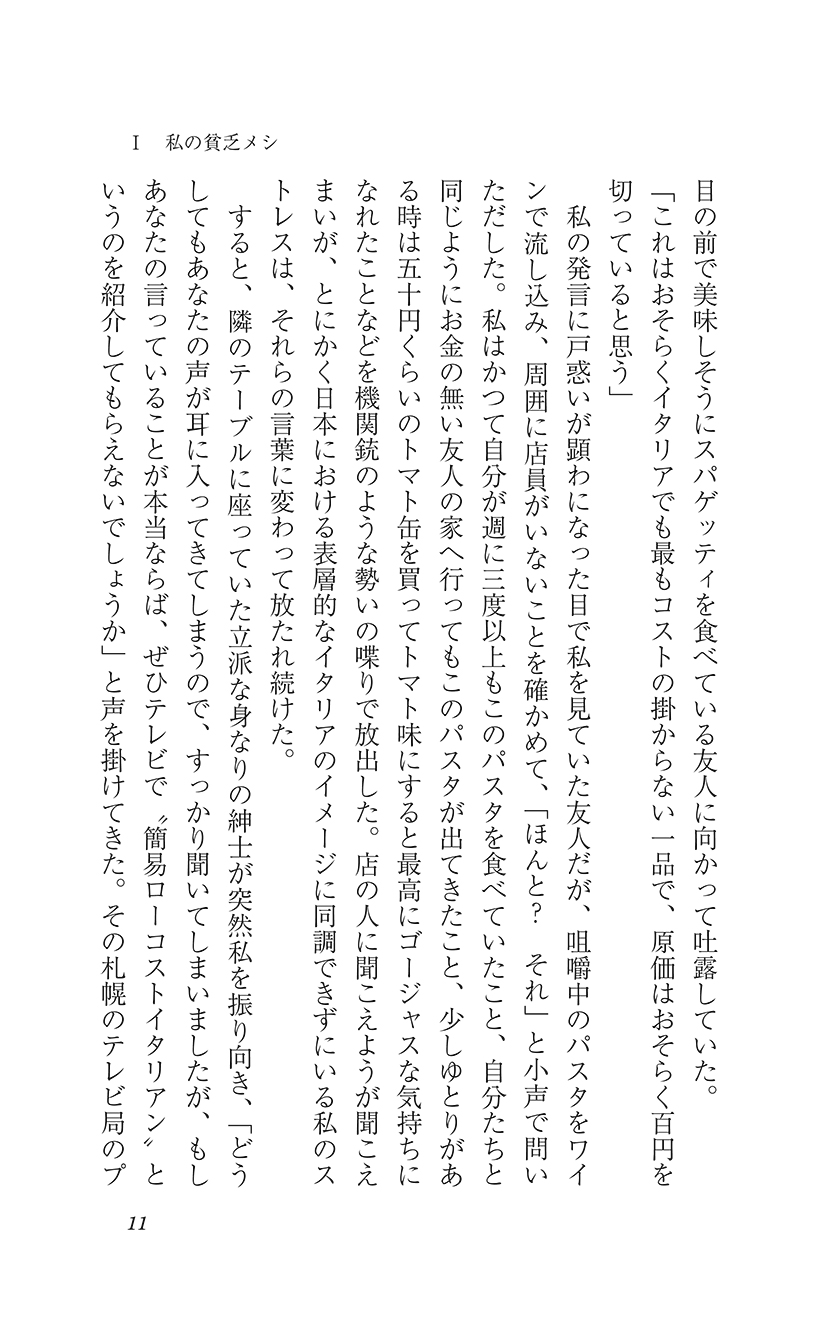 Ⅰ　私の貧乏メシ
目の前で美味しそうにスパゲッティを食べている友人に向かって吐露していた。
「これはおそらくイタリアでも最もコストの掛からない一品で、原価はおそらく百円を
切っていると思う」
　私の発言に戸惑いが顕わになった目で私を見ていた友人だが、咀嚼中のパスタをワイ
ンで流し込み、周囲に店員がいないことを確かめて、「ほんと？　それ」と小声で問い
ただした。私はかつて自分が週に三度以上もこのパスタを食べていたこと、自分たちと
同じようにお金の無い友人の家へ行ってもこのパスタが出てきたこと、少しゆとりがあ
る時は五十円くらいのトマト缶を買ってトマト味にすると最高にゴージャスな気持ちに
なれたことなどを機関銃のような勢いの喋りで放出した。店の人に聞こえようが聞こえ
まいが、とにかく日本における表層的なイタリアのイメージに同調できずにいる私のス
トレスは、それらの言葉に変わって放たれ続けた。
　すると、隣のテーブルに座っていた立派な身なりの紳士が突然私を振り向き、「どう
してもあなたの声が耳に入ってきてしまうので、すっかり聞いてしまいましたが、もし
あなたの言っていることが本当ならば、ぜひテレビで〝簡易ローコストイタリアン〟と
いうのを紹介してもらえないでしょうか」と声を掛けてきた。その札幌のテレビ局のプ
11